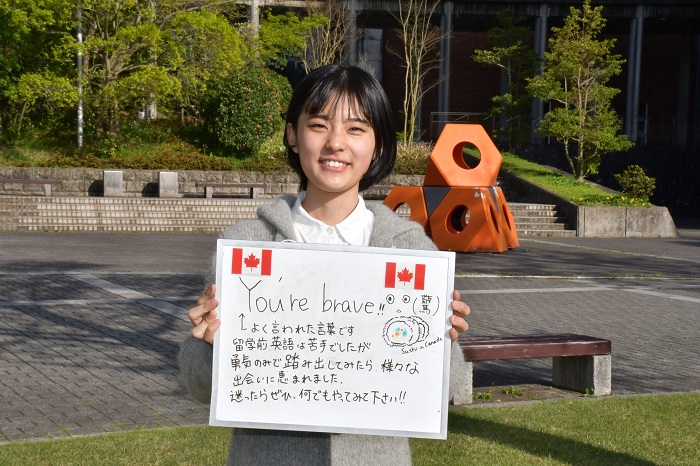 You're brave!!
(驚)
↑よく言われた言葉です
留学前英語は苦手でしたが
勇気のみで踏み出してみたら、様々な
出会いに恵まれました。
迷ったらぜひ、何でもやってみて下さい!!
Sushi in Canada